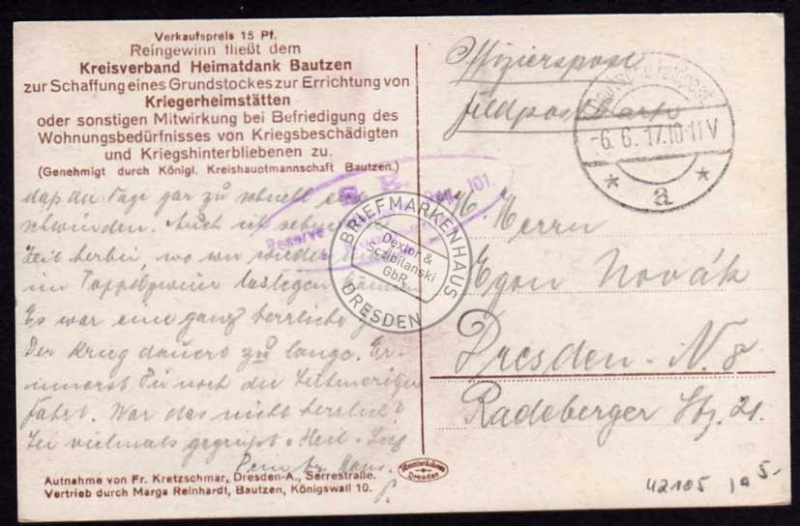 Verkaufspreis 15 Pf.
Reingewinn fließt dem
Kreisverband Heimatdank Bautzen
zur Schaffung eines Grundstockes zur Errichtung von
Kriegerheimstätten
oder sonstigen Mitwirkung bei Befriedigung des
Wohnungsbedürfnisses von Kriegsbeschädigten
und Kriegshinterbliebenen zu.
(Genehmigt durch Königl. Kreishauptmannschaft Bautzen.)
daß die Tage gar zu schnell
schwinden. Auch ich
Zeit herbei, wo wir wieder
im
Es war eine ganz herrliche
Der Krieg dauert zu lange. Er-
innerst Du noch der Leitmeritzer
Fahrt. War das nicht herrlich?
Sei vielmals gegrüßt
Dein
Aufnahme von Fr. Kretzschmar, Dresden-A., Serrestraße.
Vertrieb durch Marga Reinhardt, Bautzen, Königswall 10.
S. B.
Reserve
101
BRIEFMARKENHAUS
Dextor &
Sczibilanski
GbR
DRESDEN
Offizierspost
Feldpostkarte
-6.6.17.10-11V
* a *
Herrn
Egon Novák
Dresden-N. 8
Radeberger Str. 21.
Dresden
42105